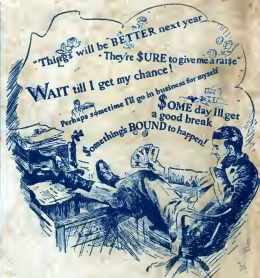 "Things will be BETTER next year
"They're $URE to give me a rai$e"
WAIT till I get my chance!
Perhaps sometime I'll go in business for myself
$OME day I'll get
a good break
$omething's BOUND to happen!